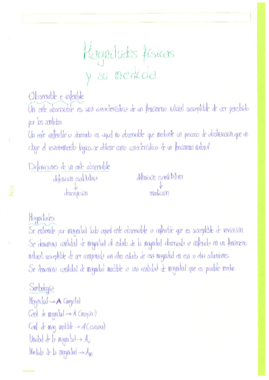 Magnitudes físicas
y su medida
Observable o inferible
Un ente observable es una característica de un fenómeno natural susceptible de ser percibido
por los sentidos
Un ente inferible o abstracto es aquel no observable que mediante un proceso de abstracción que
el razonamiento lógico se obtiene como característica de un fenómeno natural.
Definiciones de un ente observable
definición cualitativa definición cuantitativa
↓ ↓
descripción medición
Magnitudes
Se entiende por magnitud todo aquel ente observable o inferible que es susceptible de
Se denomina cantidad de magnitud al estado de la magnitud observado o inferido en un fenómeno
natural susceptible de ser comparado con otro estado de esa magnitud en ese u otro fenómeno.
Se denomina cantidad de magnitud medible a una cantidad de magnitud que es posible medir.
Simbología
Magnitud → A
Cant. de magnitud → A
Cant. de mag. medible → A
Unidad de la magnitud → A
Medida de la magnitud → A